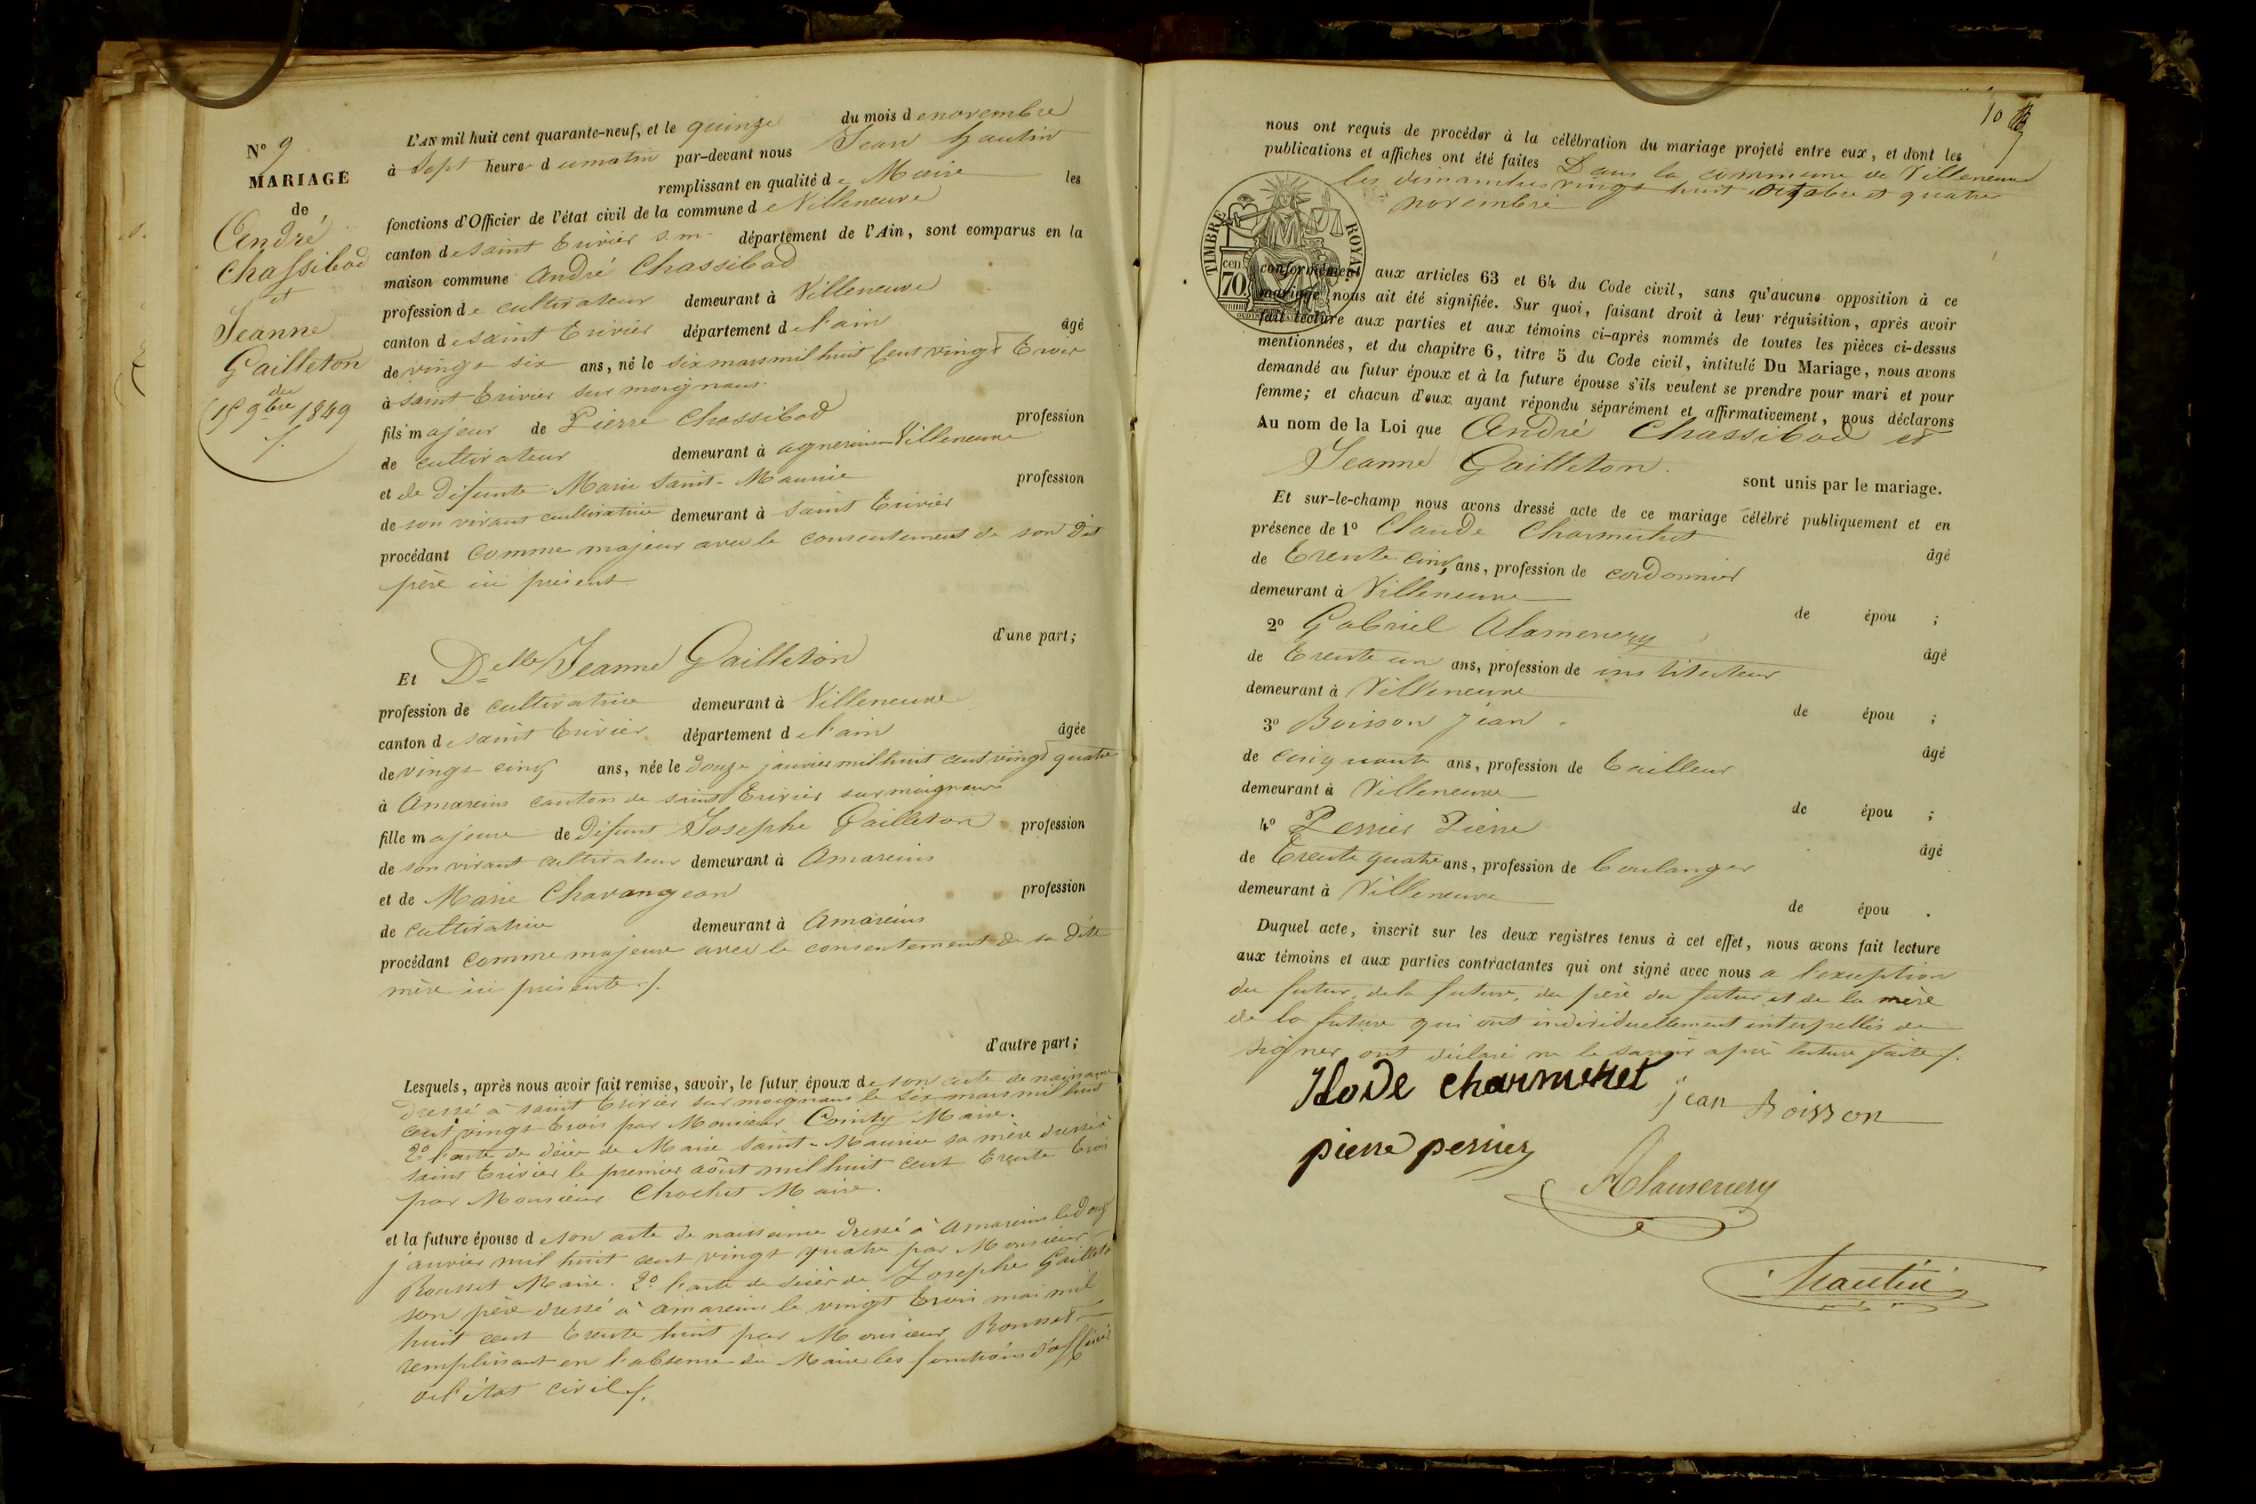 N° 9
MARIAGE
de
André
Chassibod
et
Jeanne
Gailleton
du
15 9bre 1849
L'AN mil huit cent quarante-neuf, et le quinze du mois d e novembre
à Sept heure d u matin par-devant nous Jean hautin
remplissant en qualité d e Maire les
fonctions d'Officier de l'état civil de la commune d e Villeneuve
canton d e saint Trivier s. m. département de l'Ain, sont comparus en la
maison commune André Chassibod
profession d e cultivateur demeurant à Villeneuve
canton d e saint Trivier département d e l'ain âgé
de vingt six ans, né le six mars mil huit Cent vingt Trois
à saint Trivier sur moignans
fils majeur de Pierre Chassibod profession
de cultivateur demeurant à agnereins Villeneuve
et de Défunte Marie Saint-Maurice profession
de son vivant cultivatrice demeurant à saint Trivier
procédant comme majeur avec le consentement de son Dit
père ici présent
d'une part;
Et Delle Jeanne Gailleton
profession de cultivatrice demeurant à Villeneuve
canton d e saint Trivier département d e l'ain âgée
de vingt cinq ans, née le Douze janvier mil huit cent vingt quatre
à Amareins canton de saint Trivier sur moignans
fille majeure de Défunt Josephe Gailleton profession
de son vivant cultivateur demeurant à Amareins
et de Marie Chavangeon profession
de cultivatrice demeurant à Amareins
procédant comme majeure avec le consentement de sa Ditte
mère ici présente ./.
d'autre part;
Lesquels, après nous avoir fait remise, savoir, le futur époux d e son acte de naissance
Dressé à saint Trivier sur moignans le six mars mil huit
cent vingt Trois par Monsieur Maire.
2° l'acte de décès de Marie Saint-Maurice sa mère dressé à
saint Trivier le premier août mil huit cent Trente Trois
par Monsieur Chochet Maire.
et la future épouse d e son acte de naissance dressé à Amareins le Douze
janvier mil huit cent vingt quatre par Monsieur
Rousset Maire. 2° l'acte de décès de Josephe Gailleton
son père dressé à amareins le vingt Trois mai mil
huit cent Trente huit par Monsieur Rousset
remplissant en l'absence du Maire les fonctions d'officier
de l'état civil ./.
10
nous ont requis de procéder à la célébration du mariage projeté entre eux, et dont les
publications et affiches ont été faites Dans la commune de Villeneuve
les dimanches vingt huit octobre et quatre
novembre
TIMBRE ROYAL
cen
70
conformément aux articles 63 et 64 du Code civil, sans qu'aucune opposition à ce
mariage nous ait été signifiée. Sur quoi, faisant droit à leur réquisition, après avoir
fait lecture aux parties et aux témoins ci-après nommés de toutes les pièces ci-dessus
mentionnées, et du chapitre 6, titre 5 du Code civil, intitulé Du Mariage, nous avons
demandé au futur époux et à la future épouse s'ils veulent se prendre pour mari et pour
femme; et chacun d'eux ayant répondu séparément et affirmativement, nous déclarons
Au nom de la Loi que André Chassibod et
Jeanne Gailleton.
sont unis par le mariage.
Et sur-le-champ nous avons dressé acte de ce mariage célébré publiquement et en
présence de 1° Claude Charmetet âgé
de Trente cinq ans, profession de cordonnier
demeurant à Villeneuve de épou ;
2° Gabriel Alamenery âgé
de Trente un ans, profession de instituteur
demeurant à Villeneuve de épou ;
3° Boisson Jean âgé
de cinquante ans, profession de Tailleur
demeurant à Villeneuve de épou ;
4° Perrier Pierre âgé
de Trente quatre ans, profession de boulanger
demeurant à Villeneuve de épou .
Duquel acte, inscrit sur les deux registres tenus à cet effet, nous avons fait lecture
aux témoins et aux parties contractantes qui ont signé avec nous a l'exception
du futur, de la future, du père du futur et de la mère
de la future qui ont individuellement interpellés de
signer ont déclaré ne le savoir après lecture faite ./.
Klode charmetet
jean Boisson
pierre perrier
Alamenery
hautin